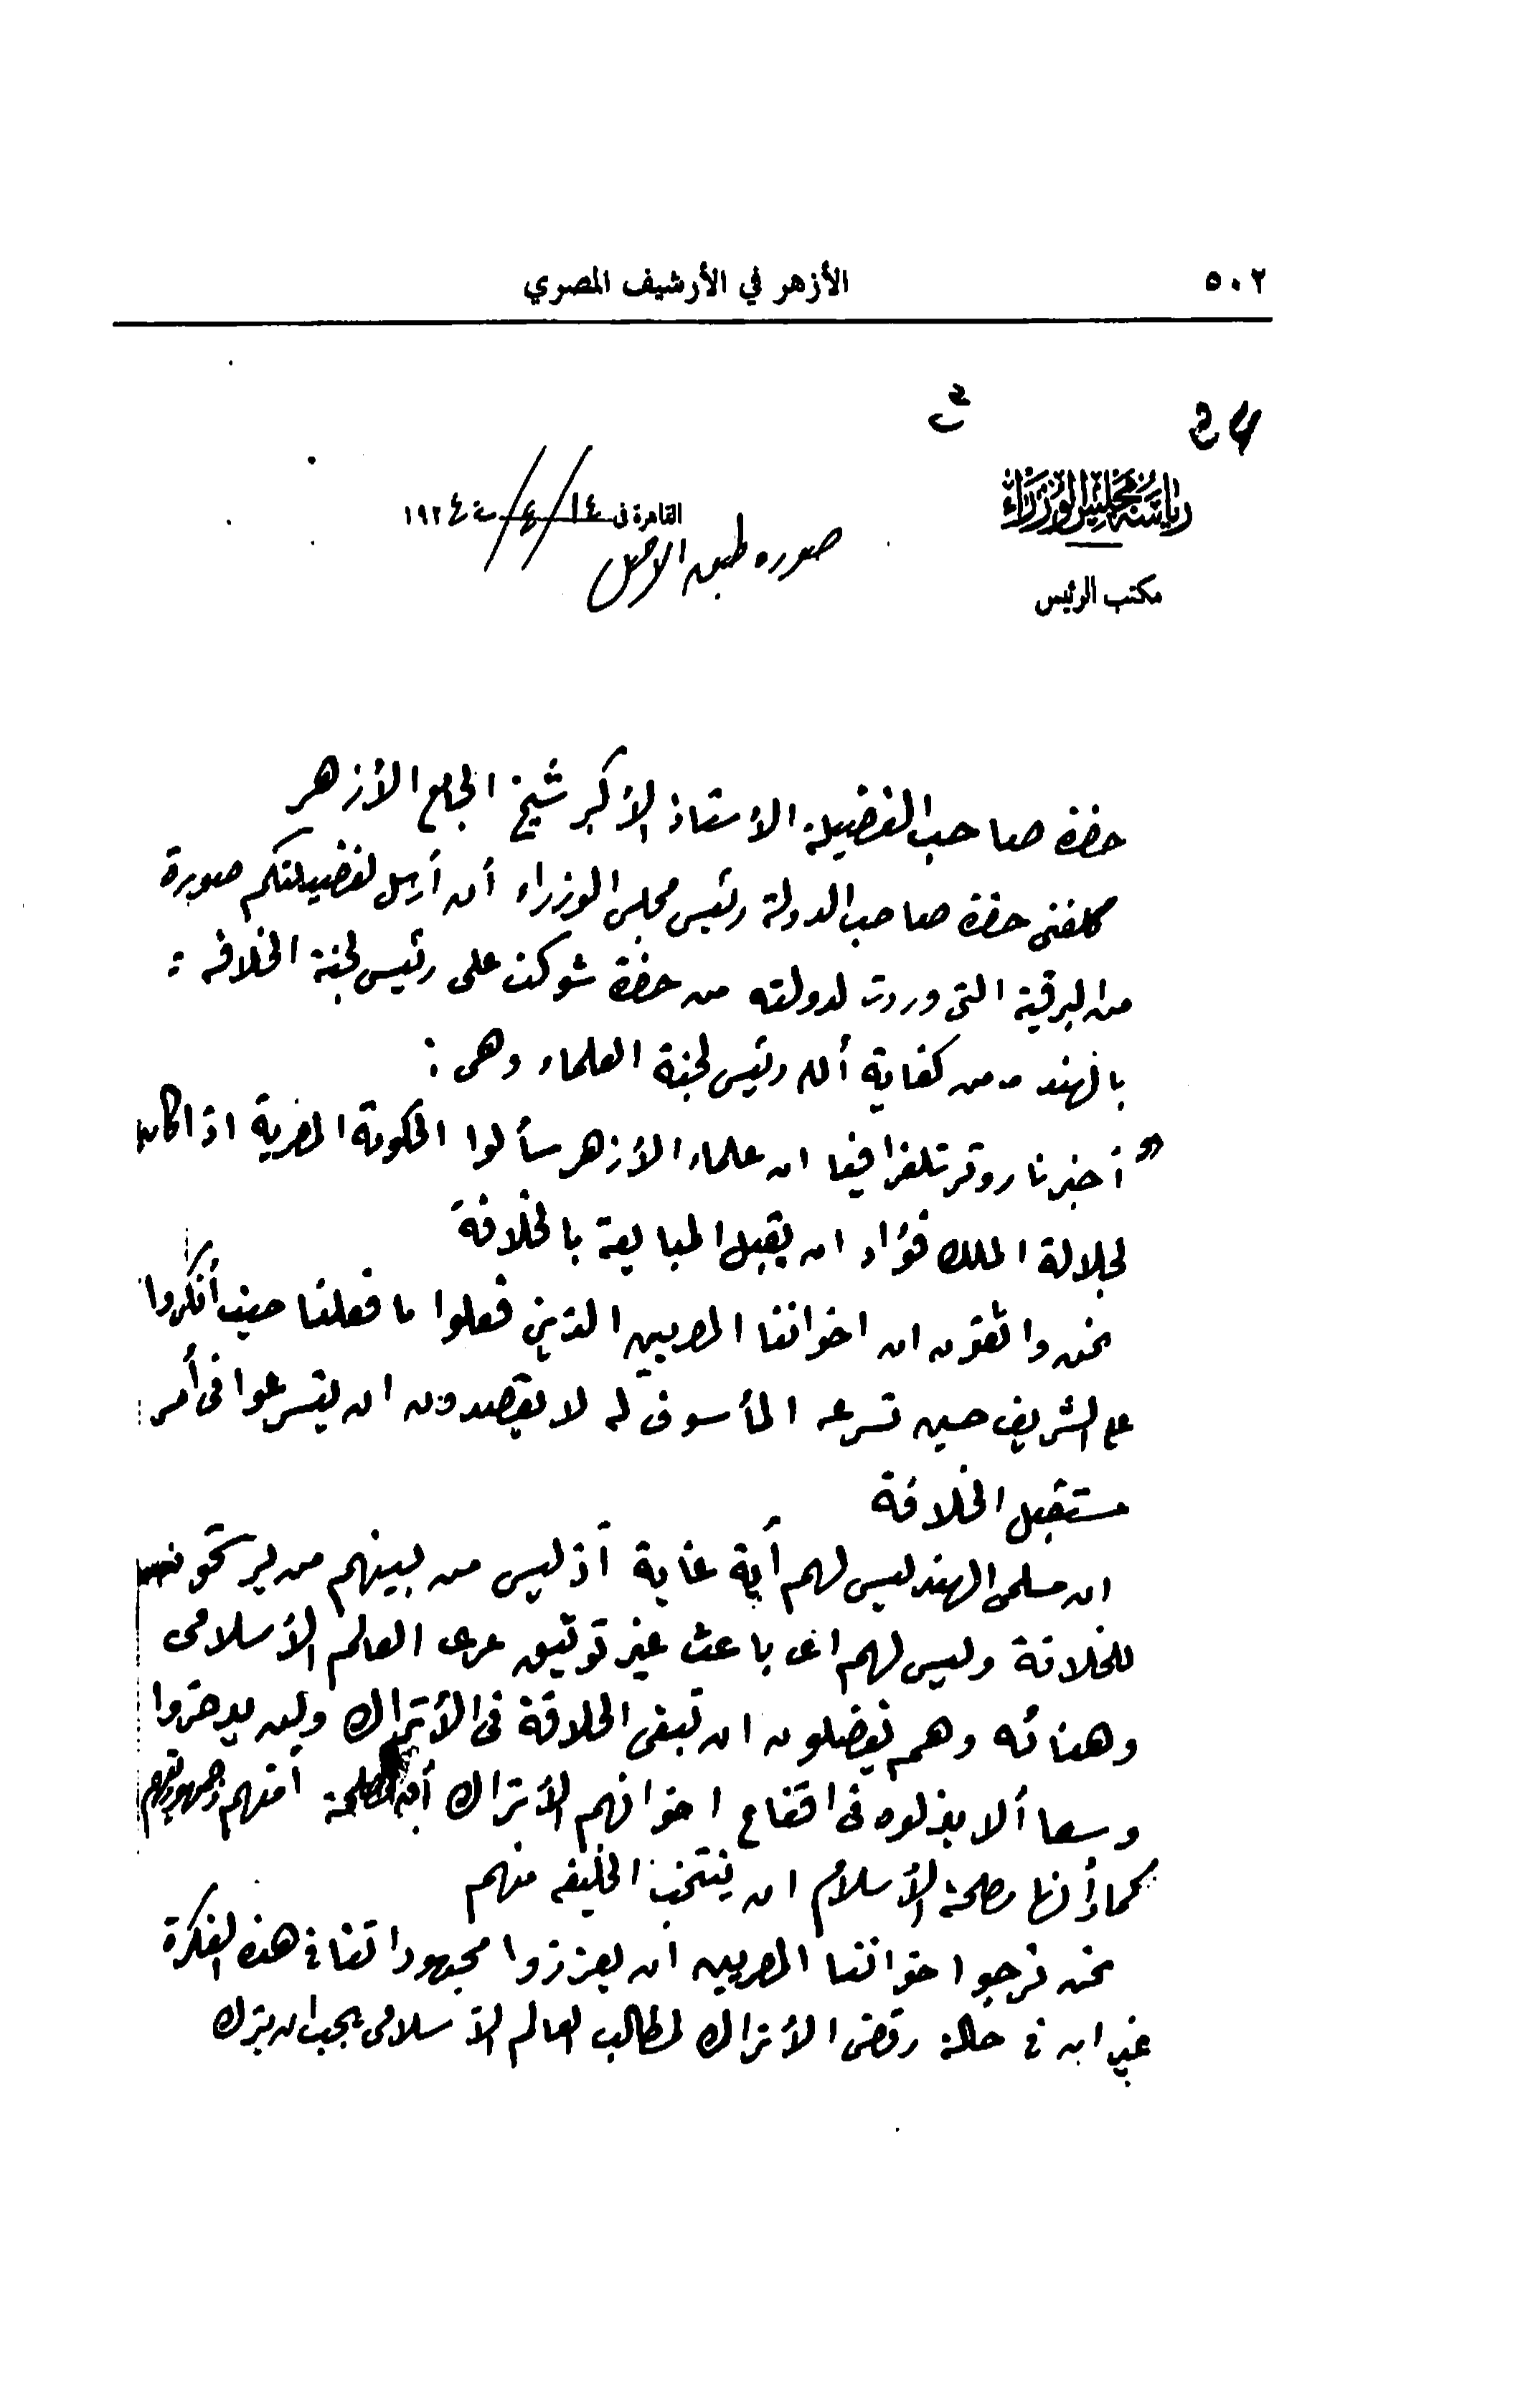 ٥٠٢
الأزهر في الأرشيف المصري
رياسة مجلس الوزراء
القاهرة في ١٤/٤/سنة ١٩٢٤
صوره طبق الاصل
مكتب الرئيس
حضرة صاحب الفضيلة الأستاذ الأكبر شيخ الجامع الأزهر
كلفنى حضرة صاحب الدولة رئيس مجلس الوزراء أن أرسل لفضيلتكم صورة
من البرقية التى وردت لدولته من حضرة شوكت على رئيس لجنة الخلافه
بالهند ومن كفاية الله رئيس لجنة العلماء وهى :
" أخبرنا روتر تلغرافيا ان علماء الأزهر سألوا الحكومة المصرية اذا كان
لجلالة الملك فؤاد ان يقبل المبايعة بالخلافة
نحن واثقون ان اخواننا المصريين الذين فعلوا ما فعلنا حين أنكروا
على الشريف حسين تسرعه المأسوف له لا يقصدون ان يتسرعوا فى أمر
مستقبل الخلافة
ان مسلمى الهند ليس لهم أية غاية أذ ليس من بينهم من يرشحونه
للخلافة وليس لهم اى باعث غير توثيق عرى العالم الأسلامى
وهنائه وهم يفضلون ان تبقى الخلافة فى الأتراك ولن يدخروا
وسعا ألا بذلوه فى اقناع اخوانهم الأتراك أن لمصلحة أمتهم وجمهوريتهم
كما أنها مصلحة الأسلام ان ينتخب الخليفه منهم
نحن نرجوا اخواننا المصريين ان يعززوا مجهوداتنا فى هذه الفكرة
غير انه فى حالة رفض الأتراك لمطالب العالم الأسلامى يجب ان يترك